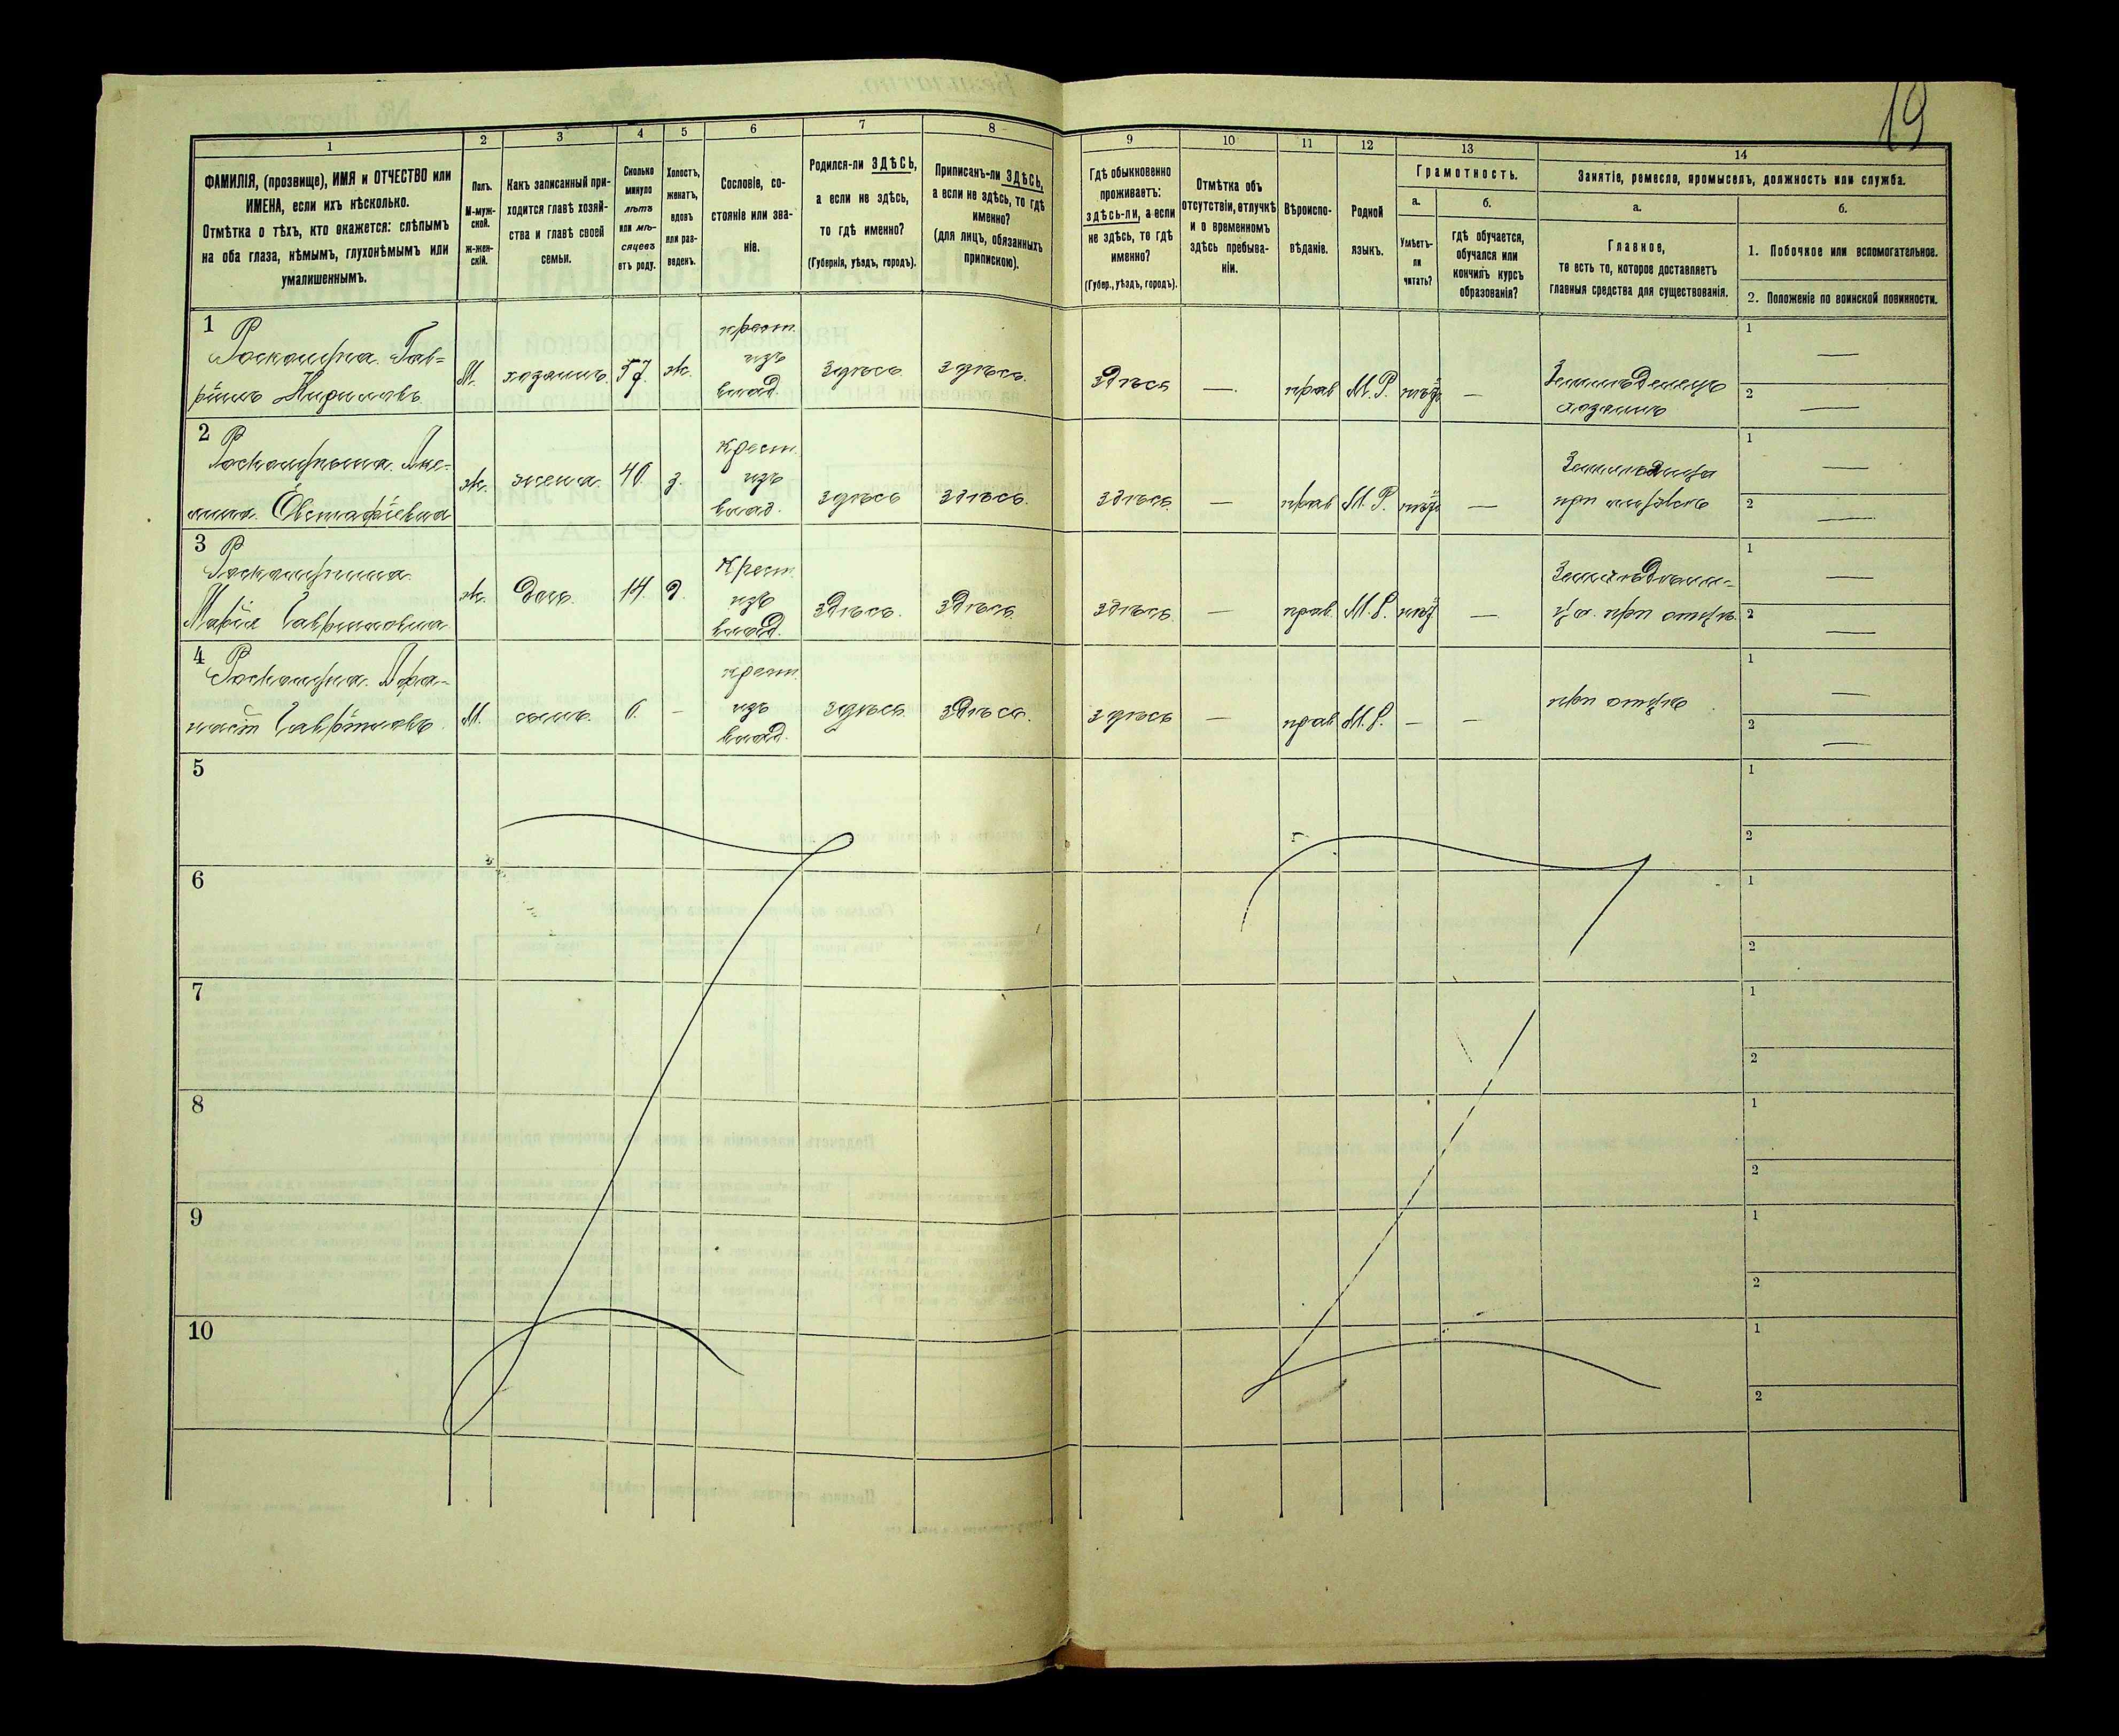 19
1
2
3
4
5
6
7
8
ФАМИЛІЯ, (прозвище), ИМЯ и ОТЧЕСТВО или
ИМЕНА, если ихъ нѣсколько.
Отмѣтка о тѣхъ, кто окажется: слѣпымъ
на оба глаза, нѣмымъ, глухонѣмымъ или
умалишеннымъ.
Полъ.
М-муж-
ской.
ж-жен-
скій.
Какъ записанный при-
ходится главѣ хозяй-
ства и главѣ своей
семьи.
Сколько
минуло
лѣтъ
или мѣ-
сяцевъ
отъ роду.
Холостъ,
женатъ,
вдовъ
или раз-
веденъ.
Сословіе, со-
стояніе или зва-
ніе.
Родился-ли ЗДѢСЬ,
а если не здѣсь,
то гдѣ именно?
(Губернія, уѣздъ, городъ).
Приписанъ-ли ЗДѢСЬ,
а если не здѣсь, то гдѣ
именно?
(для лицъ, обязанныхъ
припискою).
9
10
11
12
13
14
Гдѣ обыкновенно
проживаетъ:
здѣсь-ли, а если
не здѣсь, то гдѣ
именно?
(Губер., уѣздъ, городъ).
Отмѣтка объ
отсутствіи, отлучкѣ
и о временномъ
здѣсь пребыва-
ніи.
Вѣроиспо-
вѣданіе.
Родной
языкъ.
Грамотность.
а.
Умѣетъ-
ли
читать?
б.
гдѣ обучается,
обучался или
кончилъ курсъ
образованія?
Занятіе, ремесло, промыселъ, должность или служба.
а.
Главное,
то есть то, которое доставляетъ
главныя средства для существованія.
б.
1. Побочное или вспомогательное.
2. Положеніе по воинской повинности.
1
Гав-
ріилъ Кириловъ
М. хозяинъ. 57. ж.
крест.
изъ
влад.
здѣсь здѣсь.
здѣсь — прав М. Р. —
Земледѣлецъ
хозяинъ
1 —
2 —
2
Евстафіевна
ж. жена. 40. з.
Крест.
изъ
влад.
здѣсь здѣсь.
здѣсь — прав М. Р. —
при
1 —
2 —
3
Марія Гавриловна
ж. дочь. 14. д.
Крест.
изъ
влад.
здѣсь. здѣсь.
здѣсь — прав. М. Р. —
Земледѣли-
ца. при отцѣ.
1 —
2 —
4
Афа-
насій Гавріиловъ.
М. сынъ. 6. —
крест.
изъ
влад.
здѣсь здѣсь.
здѣсь — прав М. Р. — —
при отцѣ
1 —
2 —
5
1
2
6
1
2
7
1
2
8
1
2
9
1
2
10
1
2